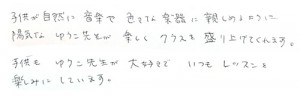 子供が自然に音楽で 色々な楽器に親しめるように
陽気な ゆうこ先生が 楽しく クラスを盛り上げてくれます。
子供も ゆうこ先生が 大好きで いつも レッスンを
楽しみにしています。